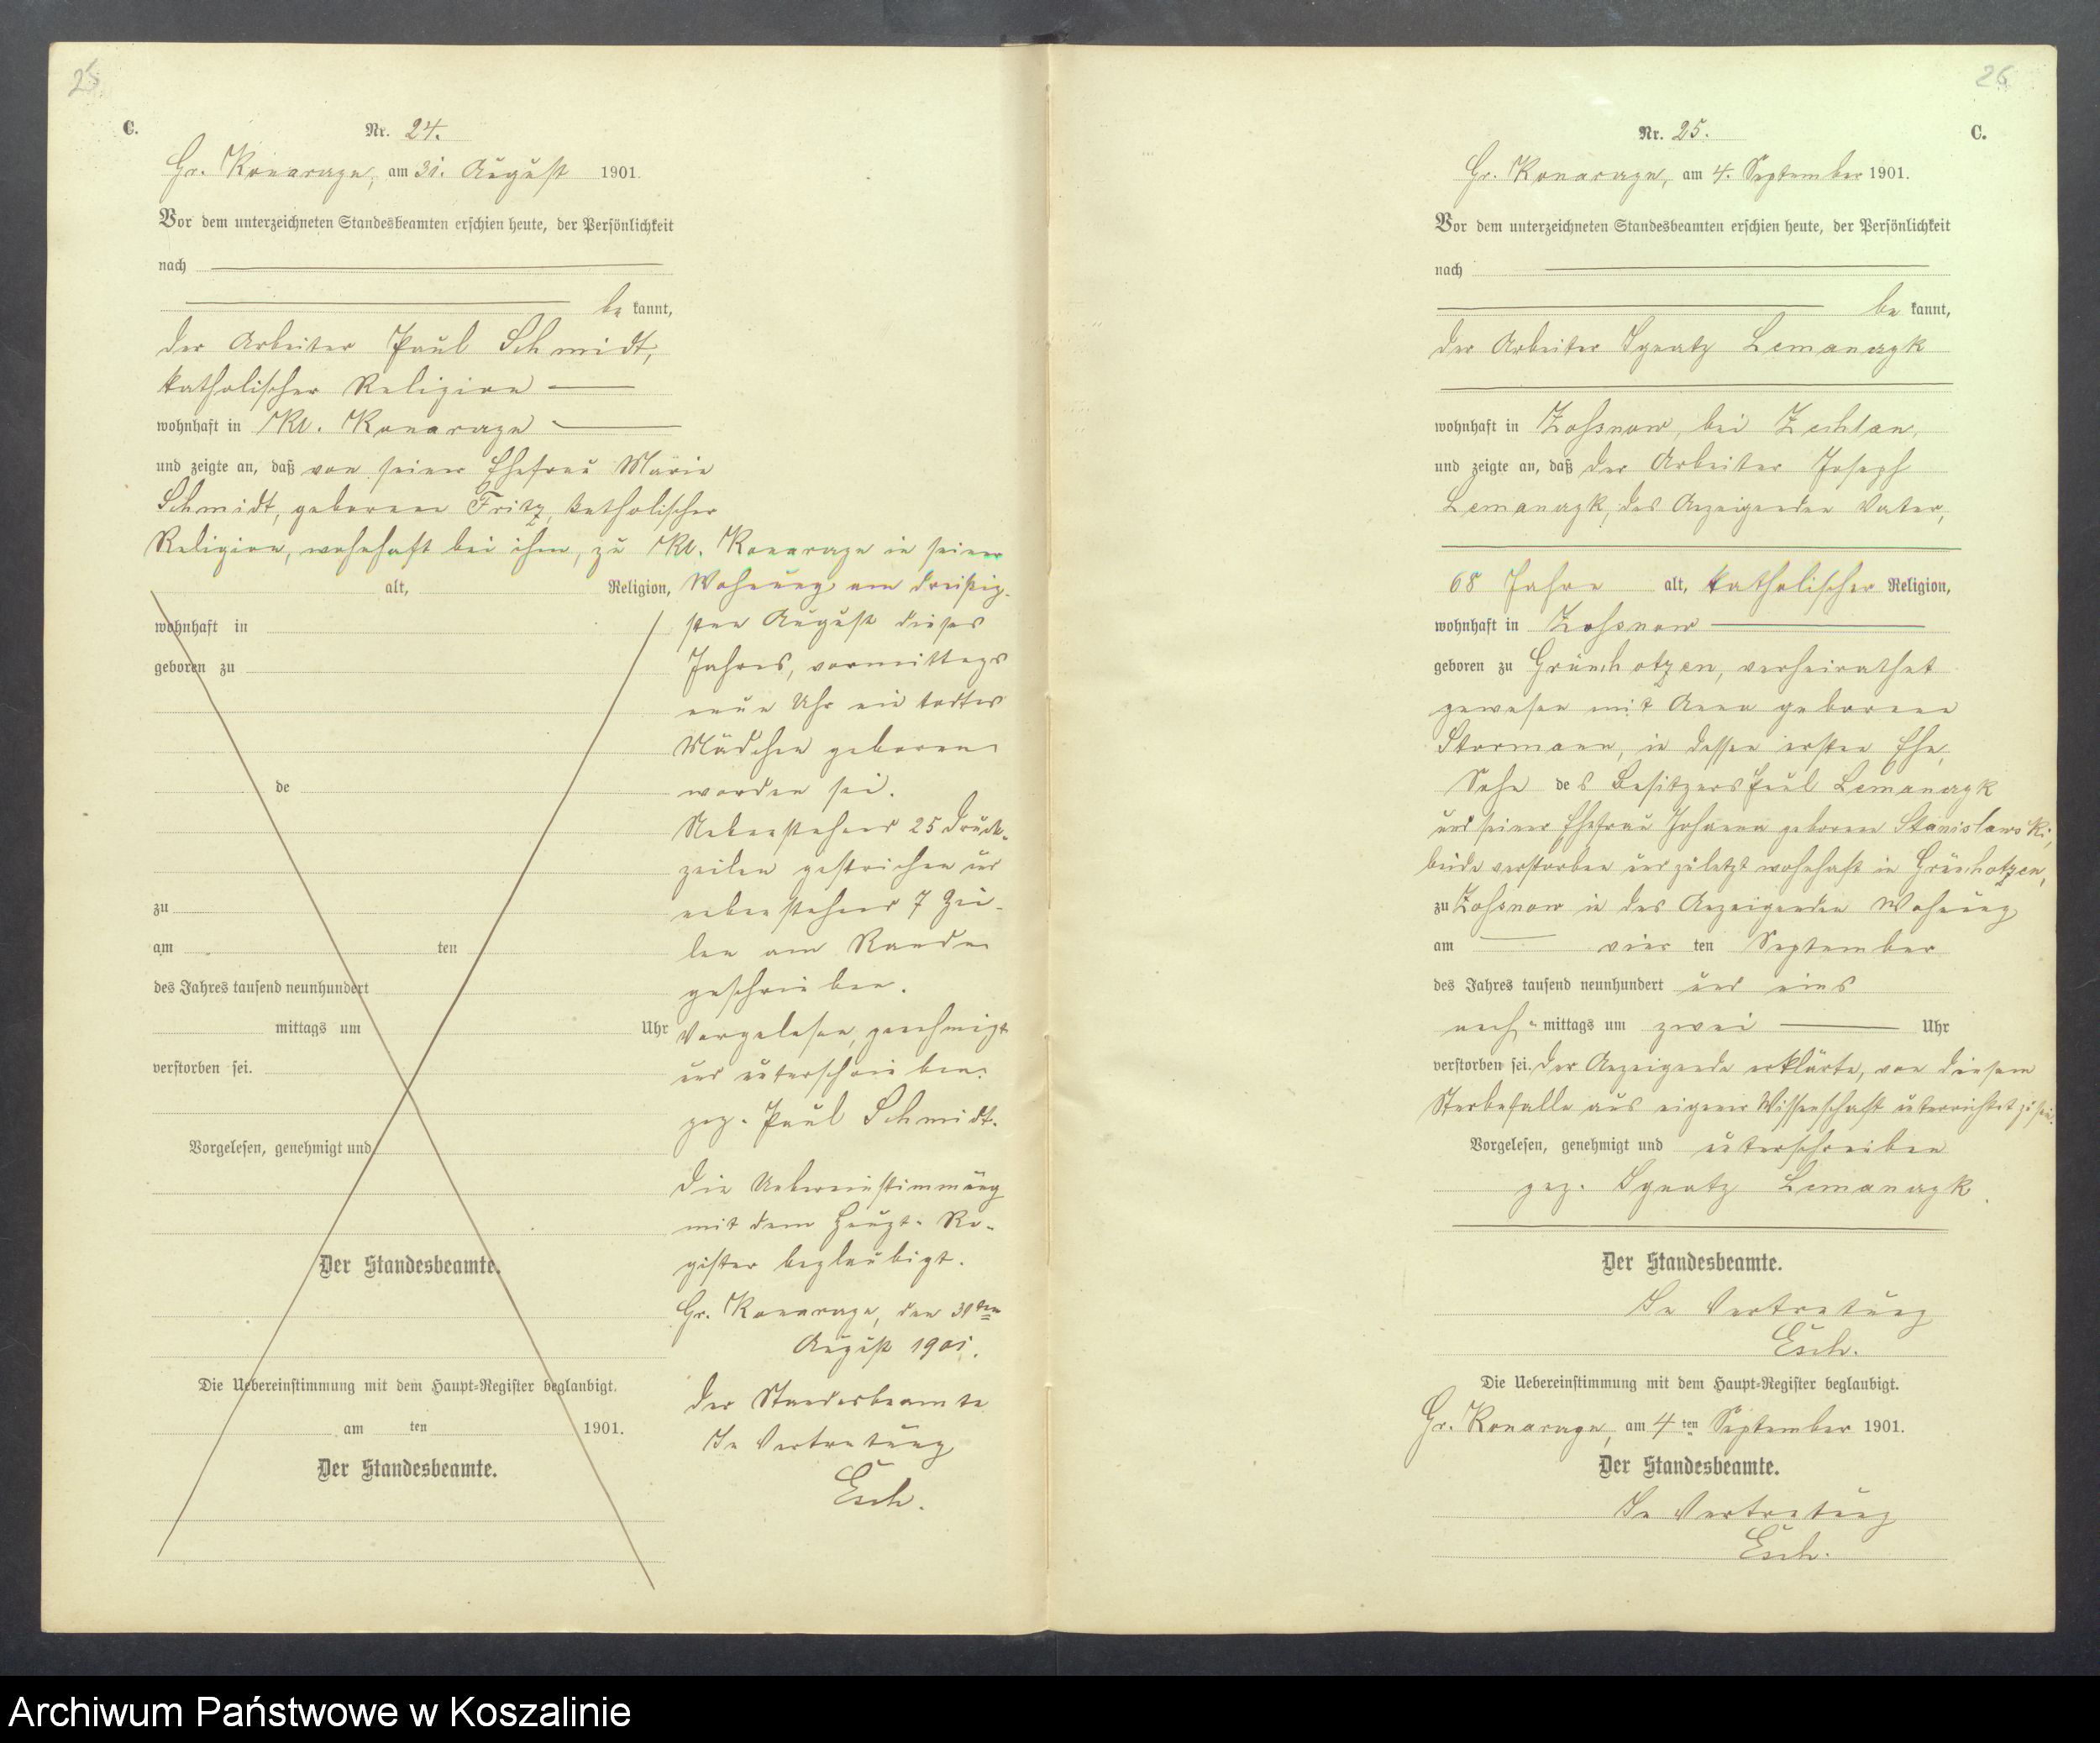 25
C.
Nr. 24.
Gr. Konarzyn, am 31. August 1901.
Vor dem unterzeichneten Standesbeamten erschien heute, der Persönlichkeit
nach
be kannt,
der Arbeiter Paul Schmidt,
katholischer Religion
wohnhaft in Kl. Konarzyn
und zeigte an, daß von seiner Ehefrau Marie
Schmidt, geborene Fritz, katholischer
Religion, wohnhaft bei ihm, zu Kl. Konarzyn in seiner
alt, Religion, Wohnung am dreißig-
wohnhaft in sten August dieses
geboren zu Jahres, vormittags
neun Uhr ein todtes
Mädchen geboren
de worden sei.
Nebenstehend 25 Druck-
zeilen gestrichen und
zu nebenstehend 7 Zei-
am ten len am Rande
des Jahres tausend neunhundert geschrieben.
mittags um Uhr Vorgelesen, genehmigt
verstorben sei. und unterschrieben.
gez. Paul Schmidt.
Vorgelesen, genehmigt und
Die Uebereinstimmung
mit dem Haupt-Re-
Der Standesbeamte. gister beglaubigt.
Gr. Konarzyn, den 31ten
August 1901.
Die Uebereinstimmung mit dem Haupt-Register beglaubigt.
Der Standesbeamte
am ten 1901.
In Vertretung
Der Standesbeamte.
Esch.
26
Nr. 25. C.
Gr. Konarzyn, am 4. September 1901.
Vor dem unterzeichneten Standesbeamten erschien heute, der Persönlichkeit
nach
be kannt,
der Arbeiter Ignatz Lemanczyk
wohnhaft in Zossnow, bei Zechlau,
und zeigte an, daß der Arbeiter Joseph
Lemanczyk, des Anzeigenden Vater,
68 Jahre alt, katholischer Religion,
wohnhaft in Zossnow
geboren zu Grünchotzen, verheirathet
gewesen mit Anna geborene
Stormann, in dessen ersten Ehe,
Sohn des Besitzers Paul Lemanczyk
und seiner Ehefrau Johanna geborene Stanislawski,
beide verstorben und zuletzt wohnhaft in Grünchotzen,
zu Zossnow in des Anzeigenden Wohnung
am vier ten September
des Jahres tausend neunhundert und eins
nach- mittags um zwei Uhr
verstorben sei. Der Anzeigende erklärte, von diesem
Sterbefalle aus eigener Wissenschaft unterrichtet zu sein.
Vorgelesen, genehmigt und unterschrieben
gez. Ignatz Lemanczyk
Der Standesbeamte.
In Vertretung
Esch.
Die Uebereinstimmung mit dem Haupt-Register beglaubigt.
Gr. Konarzyn, am 4 ten September 1901.
Der Standesbeamte.
In Vertretung
Esch.
Archiwum Państwowe w Koszalinie